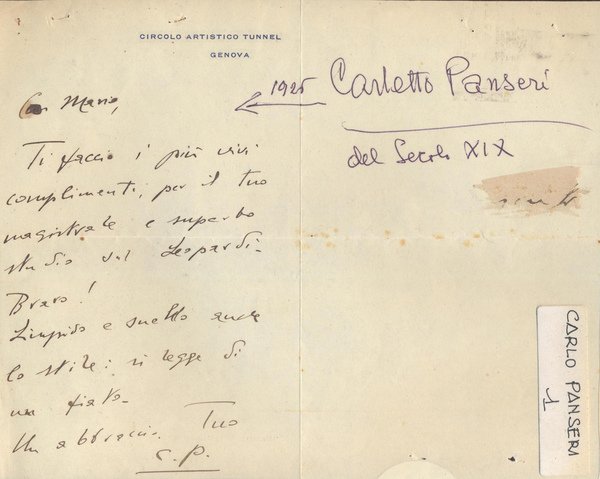 CIRCOLO ARTISTICO TUNNEL
GENOVA
Car Mario,
Ti faccio i più vivi
complimenti, per il tuo
magistrale e superbo
studio sul Leopardi.
Bravo!
Limpido e snello anche
lo stile: si legge di
un fiato.
Un abbraccio. Tuo
C. P.
1925 Carletto Panseri
del Secolo XIX
CARLO PANSERI
1